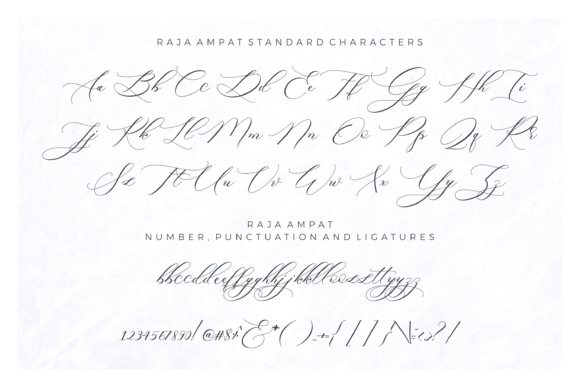 RAJA AMPAT STANDARD CHARACTERS
Aa Bb Cc Dd Ee Ff Gg Hh Ii
Jj Kk Ll Mm Nn Oo Pp Qq Rr
Ss Tt Uu Vv Ww Xx Yy Zz
RAJA AMPAT
NUMBER, PUNCTUATION AND LIGATURES
bbccddeeffgghhjjkklloosszttyyzz
1234567890!@#$%^&*()_-+={[]}